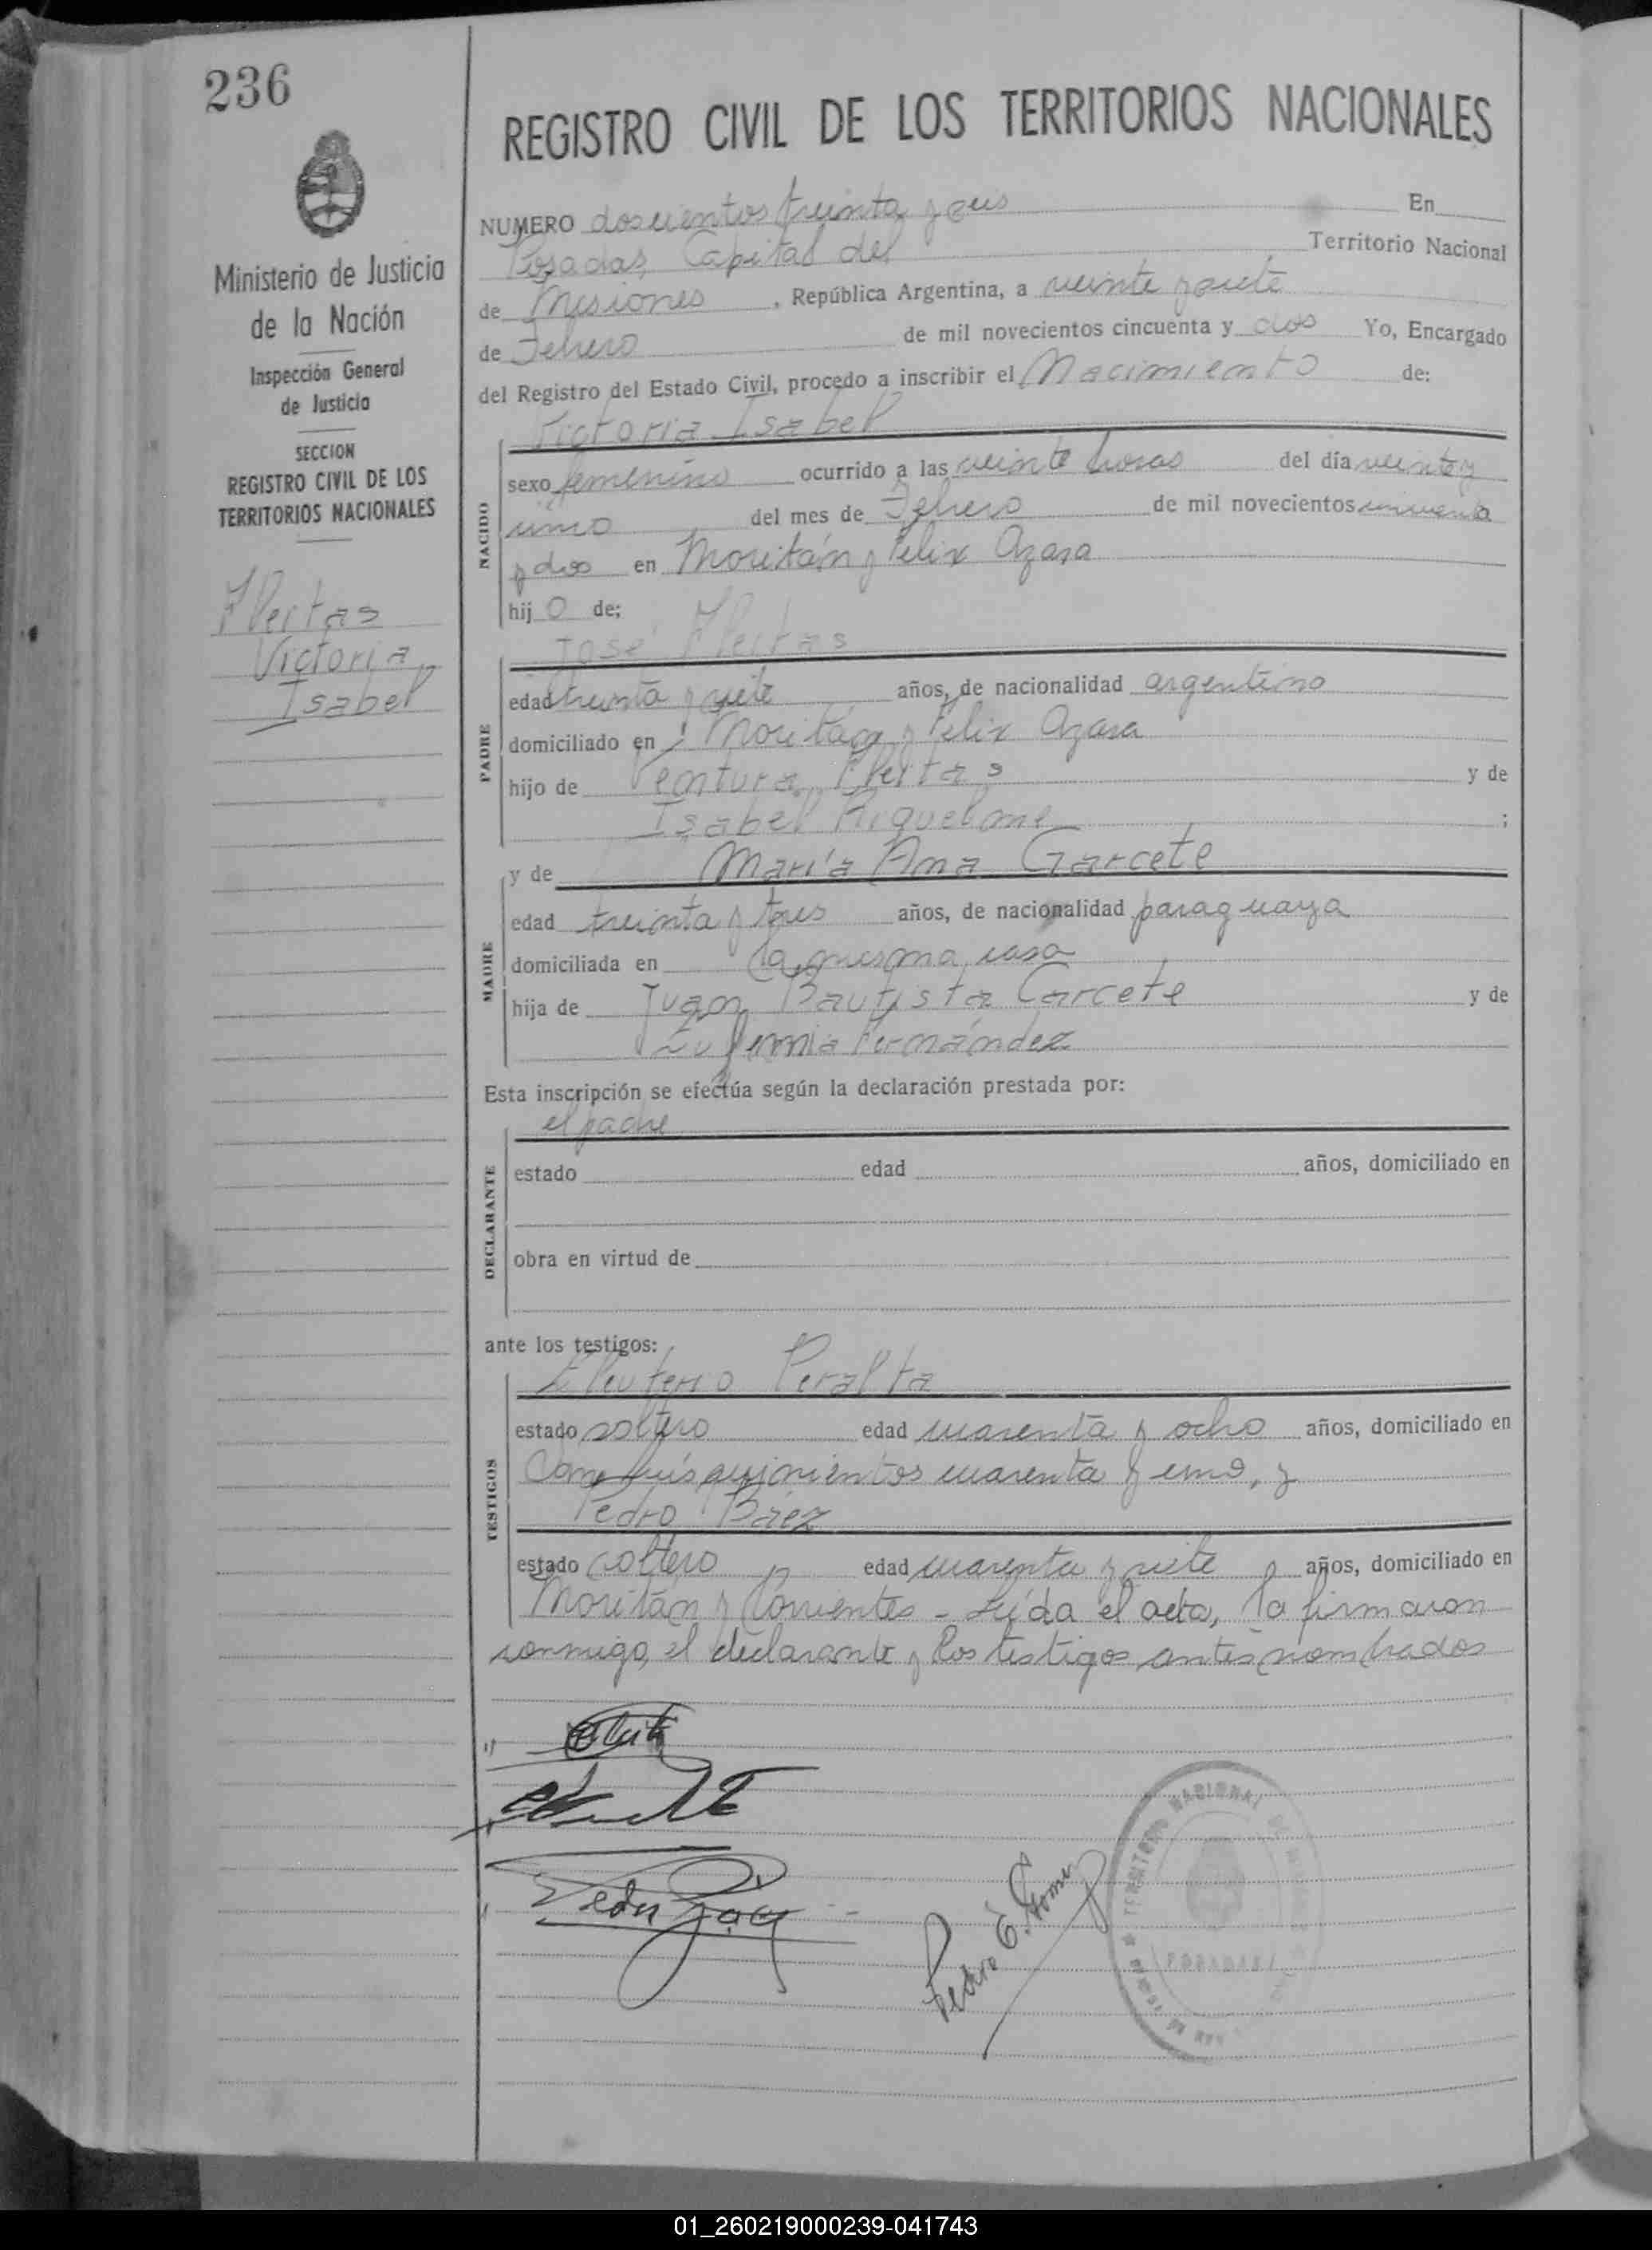 236
REGISTRO CIVIL DE LOS TERRITORIOS NACIONALES
Ministerio de Justicia
de la Nación
Inspección General
de Justicia
SECCION
REGISTRO CIVIL DE LOS
TERRITORIOS NACIONALES
Fleitas
Victoria
Isabel
NUMERO doscientos treinta y seis En
Posadas, Capital del Territorio Nacional
de Misiones, República Argentina, a veinte y siete
de Febrero de mil novecientos cincuenta y dos Yo, Encargado
del Registro del Estado Civil, procedo a inscribir el Nacimiento de:
Victoria Isabel
NACIDO
sexo femenino ocurrido a las veinte horas del día veinte y
uno del mes de Febrero de mil novecientos cincuenta
y dos en Moritán y Felix Azara
hij o de;
José Fleitas
PADRE
edad treinta y siete años, de nacionalidad argentino
domiciliado en Moritán y Felix Azara
hijo de Ventura Fleitas y de
Isabel Riquelme ;
y de María Ana Garcete
MADRE
edad treinta y tres años, de nacionalidad paraguaya
domiciliada en la misma casa
hija de Juan Bautista Garcete y de
Eufemia Fernández
Esta inscripción se efectúa según la declaración prestada por:
el padre
DECLARANTE
estado edad años, domiciliado en
obra en virtud de
ante los testigos:
Eleuterio Peralta
TESTIGOS
estado soltero edad cuarenta y ocho años, domiciliado en
San Luis quinientos cuarenta y uno, y
Pedro Báez
estado soltero edad cuarenta y siete años, domiciliado en
Moritán y Corrientes - Leída el acta, la firmaron
conmigo, el declarante y los testigos antes nombrados
Pedro Baez
Pedro E. Gomez
TERRITORIO NACIONAL DE
POSADAS
01_260219000239-041743